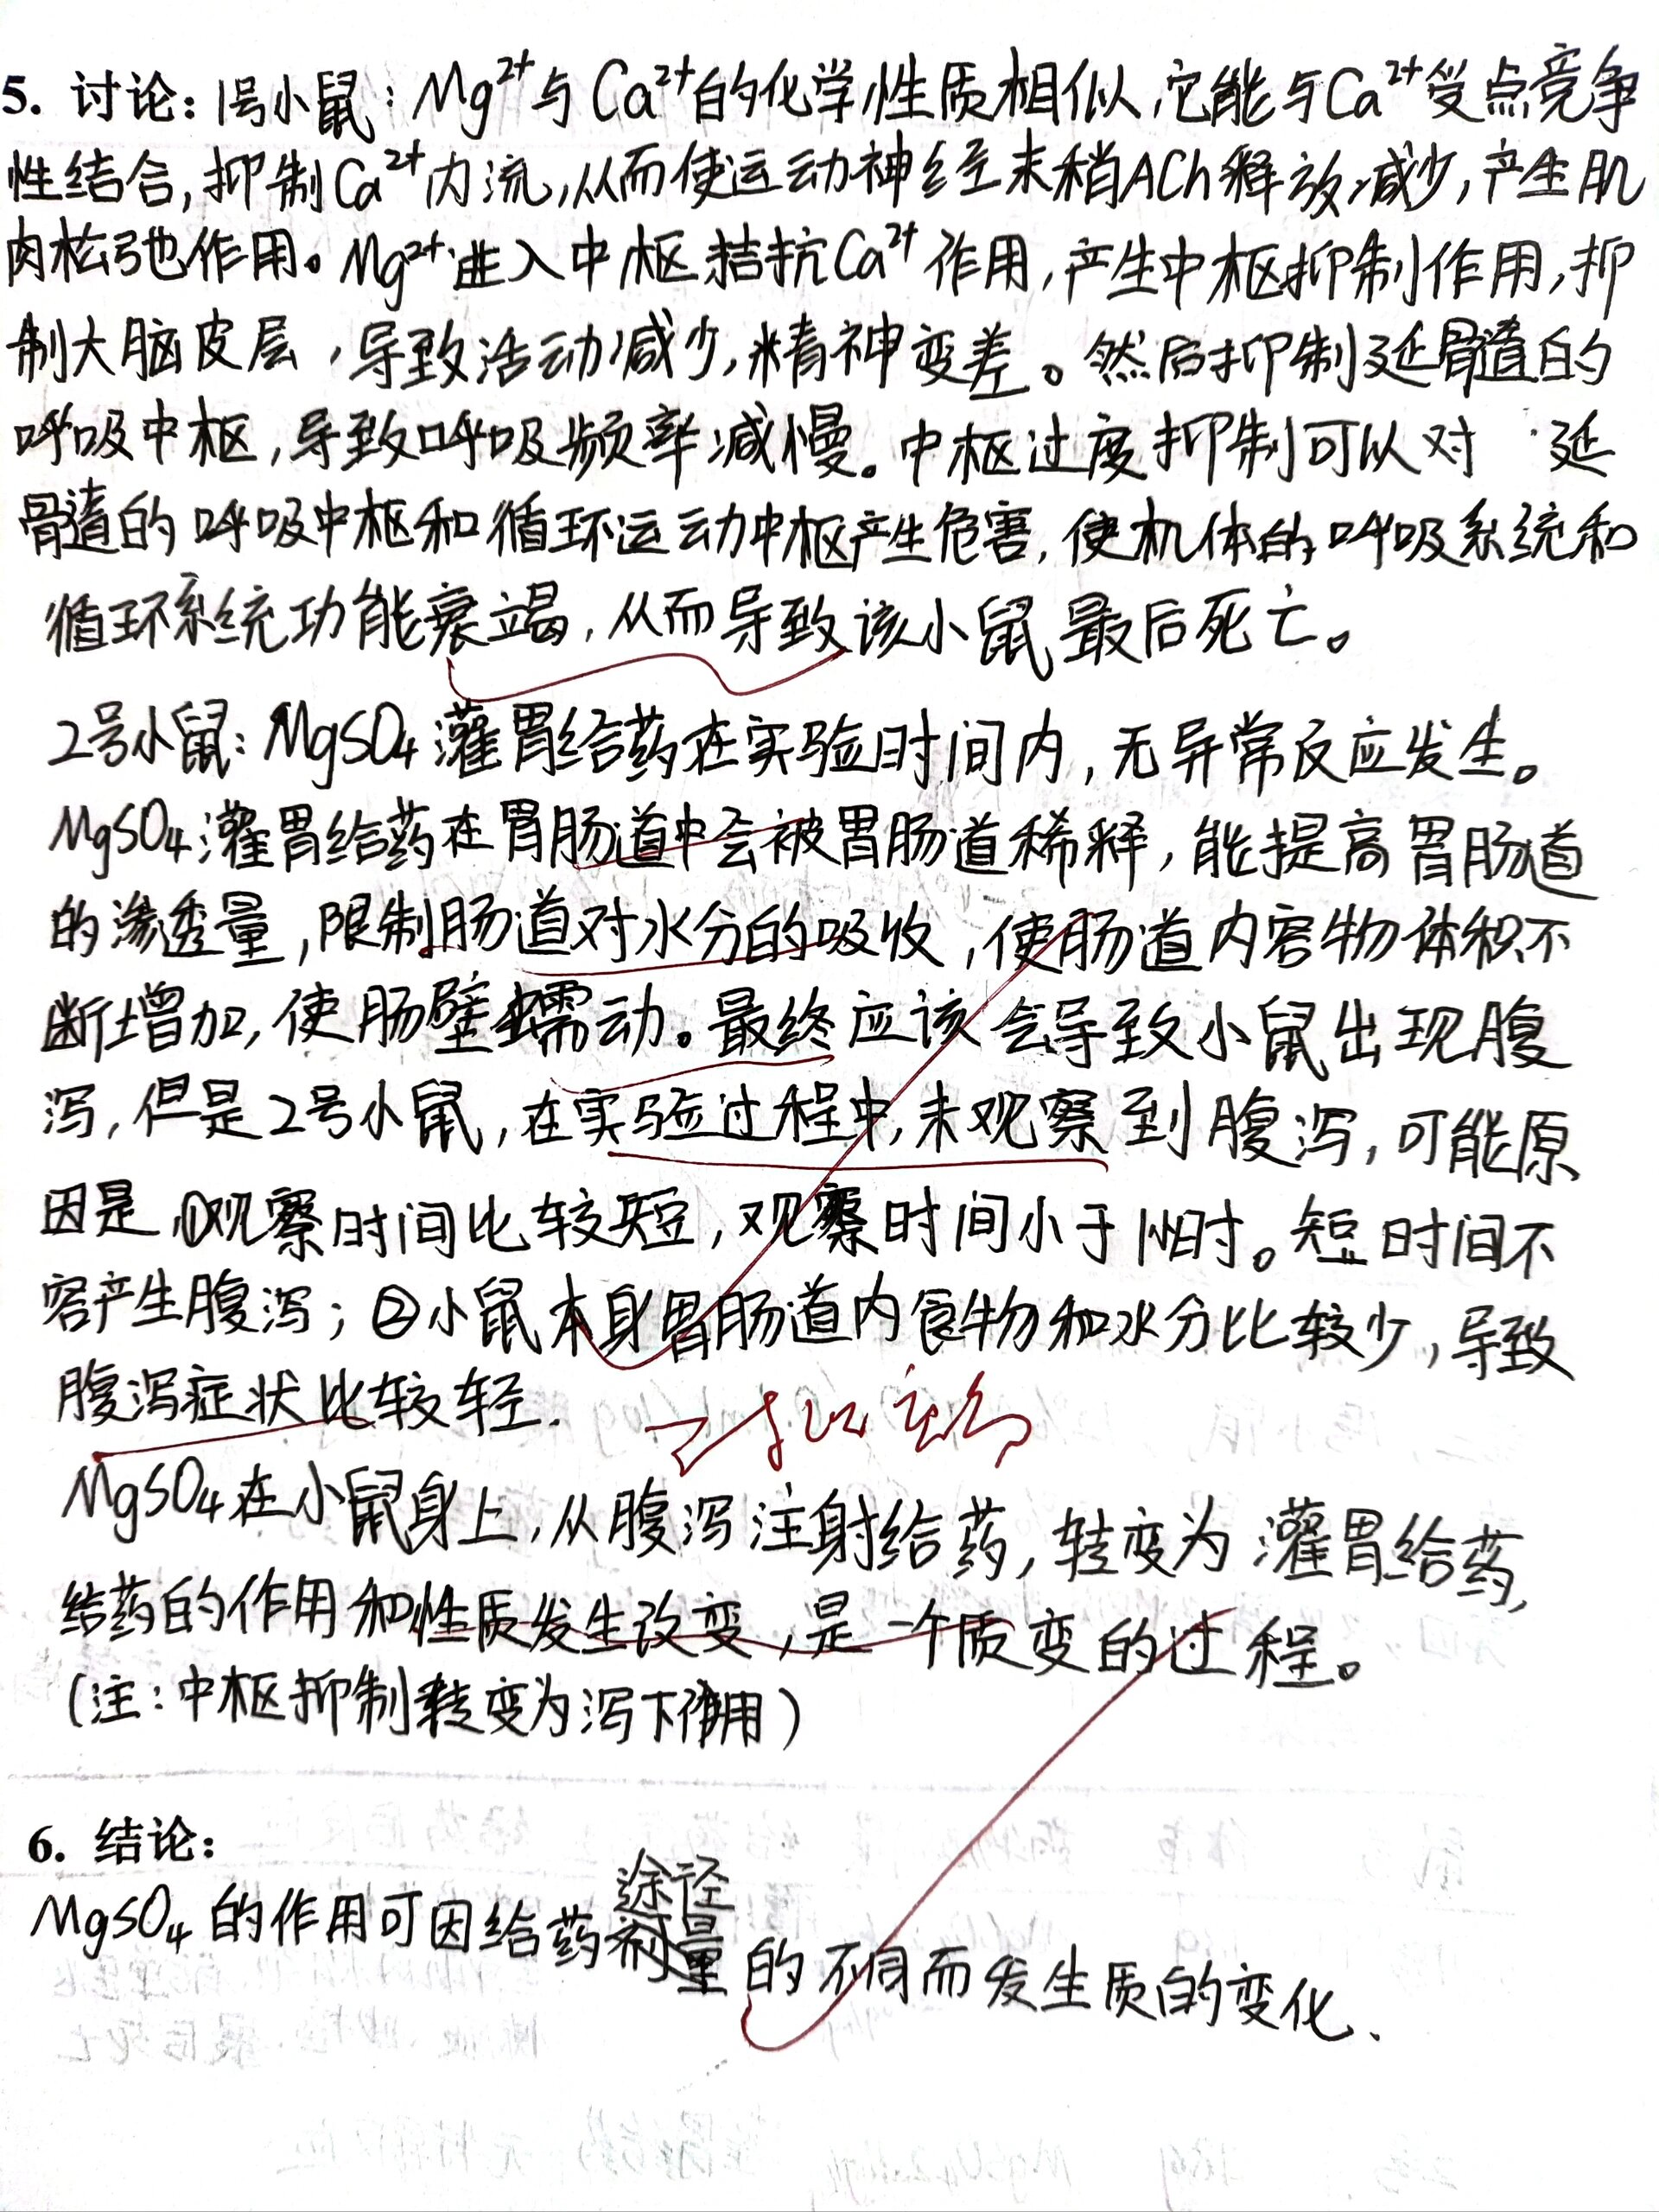 5. 讨论：1号小鼠：Mg²⁺与Ca²⁺的化学性质相似，它能与Ca²⁺受点竞争
性结合，抑制Ca²⁺内流，从而使运动神经末稍ACh释放减少，产生肌
肉松弛作用。Mg²⁺进入中枢拮抗Ca²⁺作用，产生中枢抑制作用，抑
制大脑皮层，导致活动减少，精神变差。然后抑制延髓的
呼吸中枢，导致呼吸频率减慢。中枢过度抑制可以对 延
髓的呼吸中枢和循环运动中枢产生危害，使机体的呼吸系统和
循环系统功能衰竭，从而导致该小鼠最后死亡。
2号小鼠：MgSO₄灌胃给药在实验时间内，无异常反应发生。
MgSO₄灌胃给药在胃肠道中会被胃肠道稀释，能提高胃肠道
的渗透量，限制肠道对水分的吸收，使肠道内容物体积不
断增加，使肠壁蠕动。最终应该会导致小鼠出现腹
泻，但是2号小鼠，在实验过程中，未观察到腹泻，可能原
因是①观察时间比较短，观察时间小于1小时。短时间不
容产生腹泻；②小鼠本身胃肠道内食物和水分比较少，导致
腹泻症状比较轻.
MgSO₄在小鼠身上，从腹泻注射给药，转变为灌胃给药，
给药的作用和性质发生改变，是一个质变的过程。
（注：中枢抑制转变为泻下作用）
6. 结论：
途径
MgSO₄的作用可因给药剂量的不同而发生质的变化、